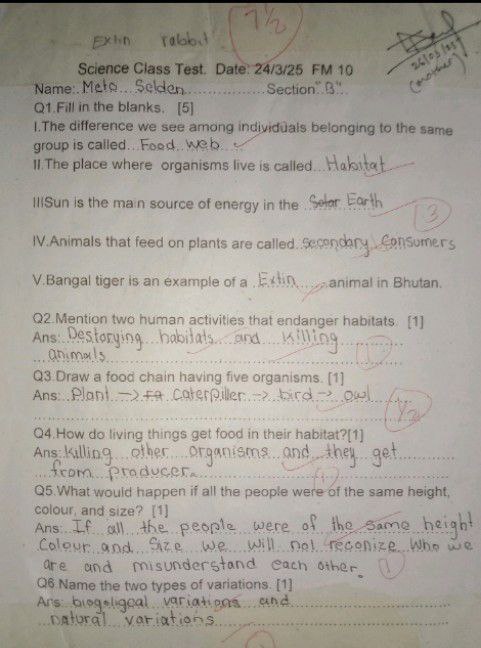 7 1/2
Extin rabbit
26/03/025
(mother)
Science Class Test. Date: 24/3/25 FM 10
Name: Meto Selden Section "B"
Q1.Fill in the blanks. [5]
I.The difference we see among individuals belonging to the same
group is called Food web
II.The place where organisms live is called Habitat
IIISun is the main source of energy in the Solar Earth
3
IV.Animals that feed on plants are called secondary Consumers
V.Bangal tiger is an example of a Extin animal in Bhutan.
Q2.Mention two human activities that endanger habitats. [1]
Ans: Destorying habitats and killing
animals
1
Q3.Draw a food chain having five organisms. [1]
Ans: Plant -> Caterpiller -> bird -> owl
1/2
Q4.How do living things get food in their habitat?[1]
Ans: killing other organisms and they get
from producer.
1
Q5.What would happen if all the people were of the same height,
colour, and size? [1]
Ans: If all the people were of the same height
Colour and Size we will not reconize who we
are and misunderstand each other.
1
Q6 Name the two types of variations. [1]
Ans: biogoligcal variations and
natural variations